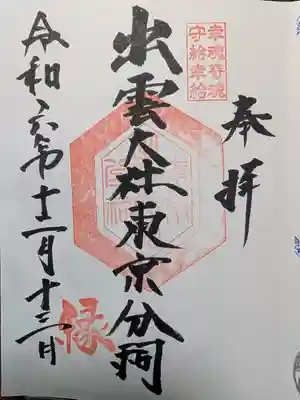 奉拝
幸魂奇魂
守給幸給
出雲大社東京分祠
縁
令和六年十二月十三日